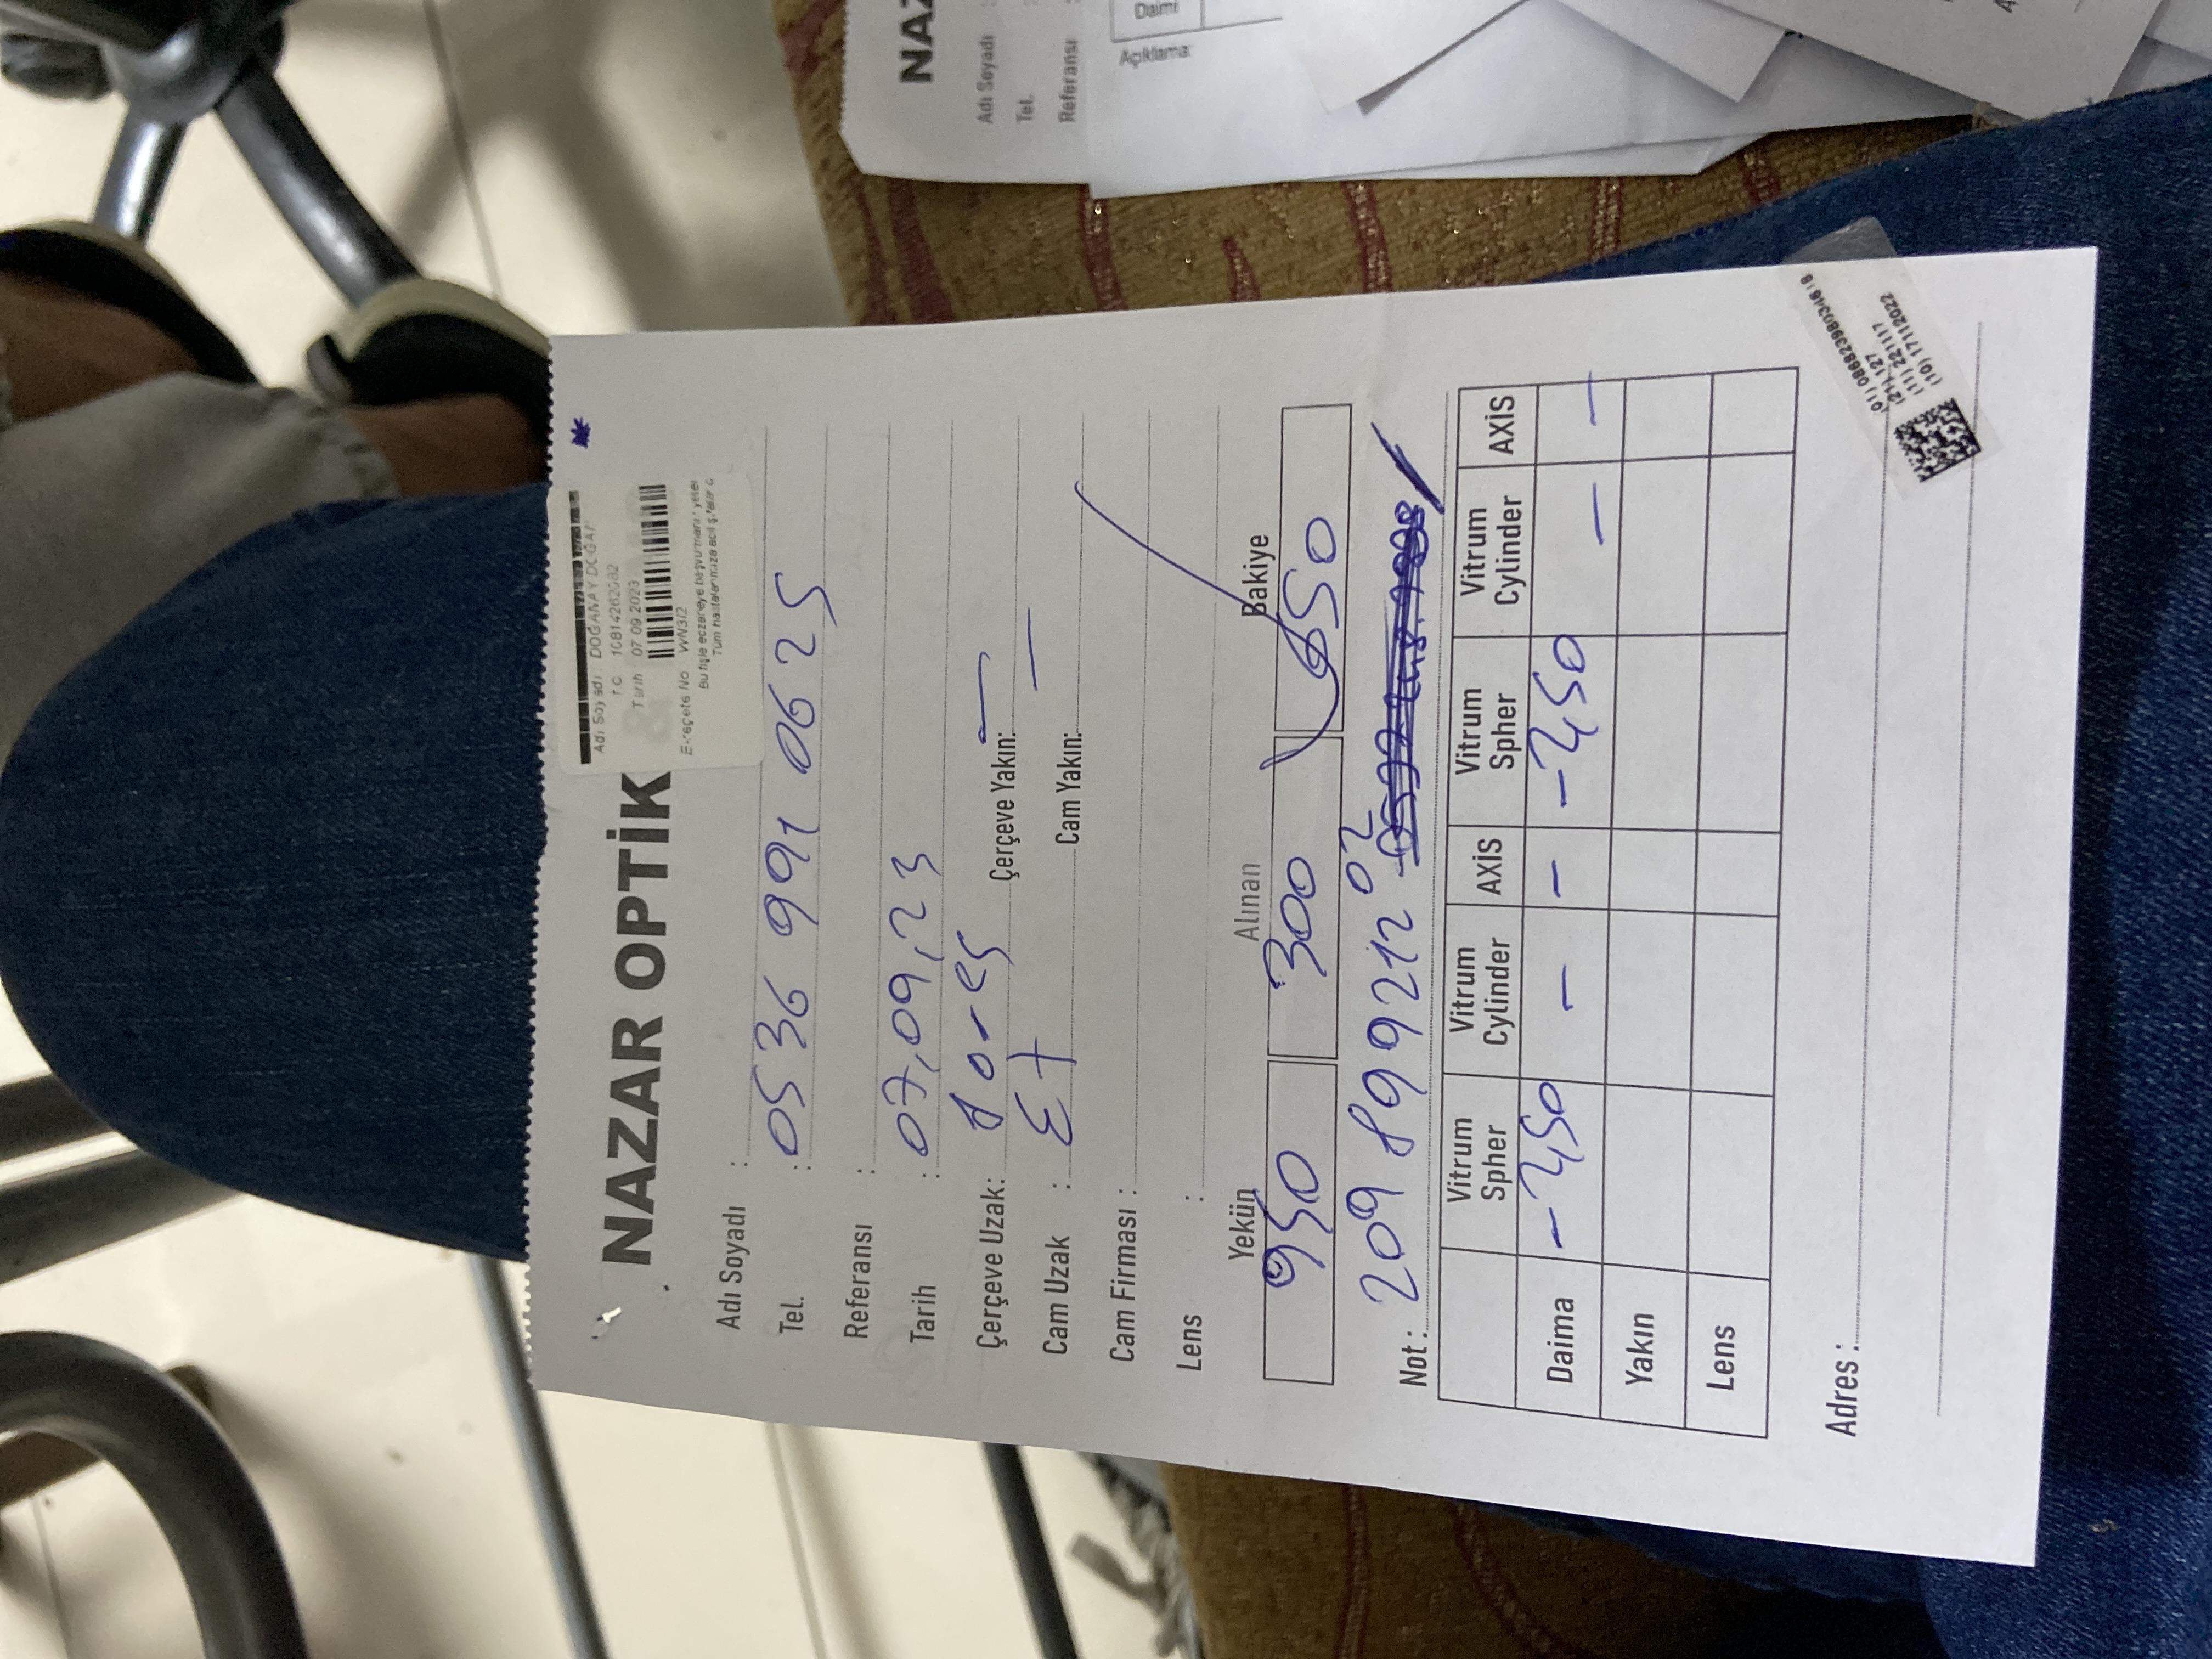 NAZAR OPTİK
Adı Soyadı : DOĞANAY DOĞAN
TC
Tarih : 07 09 2023
E-reçete No
Bu fişle eczaneye başvurmanız yeter
Adı Soyadı :
Tel. : 0536 991 0625
Referansı :
Tarih : 07,09,23
Çerçeve Uzak: Çerçeve Yakın: —
Cam Uzak : Cam Yakın: —
Cam Firması :
Lens :
Yekün Alınan Bakiye
950 300 650
Not : 209 899212 02
Vitrum Spher Vitrum Cylinder AXİS Vitrum Spher Vitrum Cylinder AXİS
Daima -2,50 — — -2,50 — —
Yakın
Lens
Adres :
(21) 127
(11) 221117
(10) 17112022
NAZ
Adı Soyadı
Tel.
Referansı
Açıklama:
Daimi